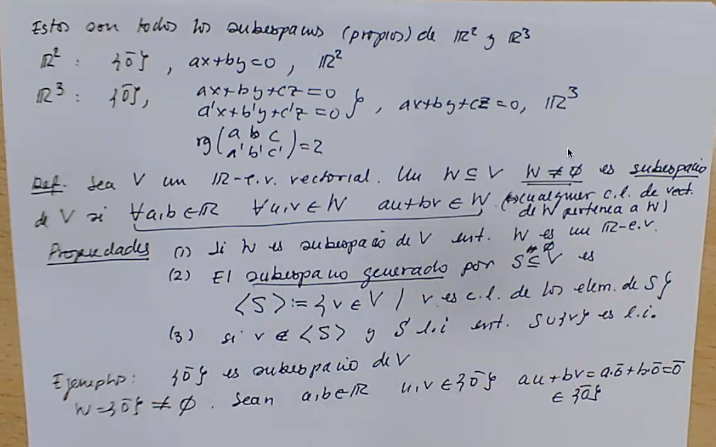 Estos son todos los subespacios (propios) de ℝ² y ℝ³
ℝ² : {0̄}, ax+by=0, ℝ²
ℝ³ : {0̄}, ax+by+cz=0
a'x+b'y+c'z=0 }, ax+by+cz=0, ℝ³
rg(a b c
a' b' c')=2
Def. Sea V un ℝ-e.v. vectorial. Un W⊆V W≠∅ es subespacio
de V si ∀a,b∈ℝ ∀u,v∈W au+bv∈W. (⇔cualquier c.l. de vect.
de W pertenece a W)
Propiedades (1) Si W es subespacio de V ent. W es un ℝ-e.v.
(2) El subespacio generado por ∅≠S⊆V es
<S>:={v∈V / v es c.l. de los elem. de S}
(3) si v∉<S> y S l.i ent. S∪{v} es l.i.
Ejemplos: {0̄} es subespacio de V
W={0̄}≠∅. Sean a,b∈ℝ u,v∈{0̄} au+bv=a·0̄+b·0̄=0̄
∈{0̄}